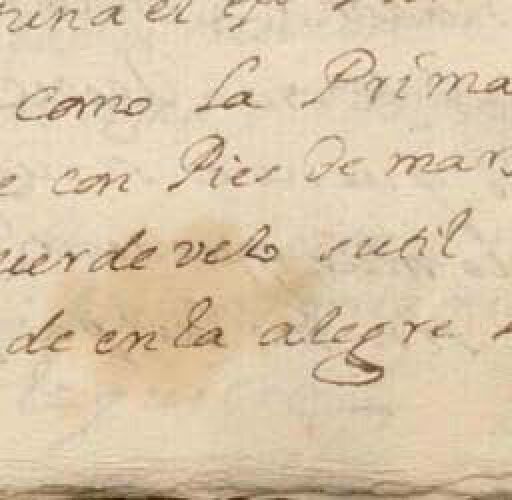 el
como la Prima
e con Pies de mar
uerde velo sutil
de en la alegre